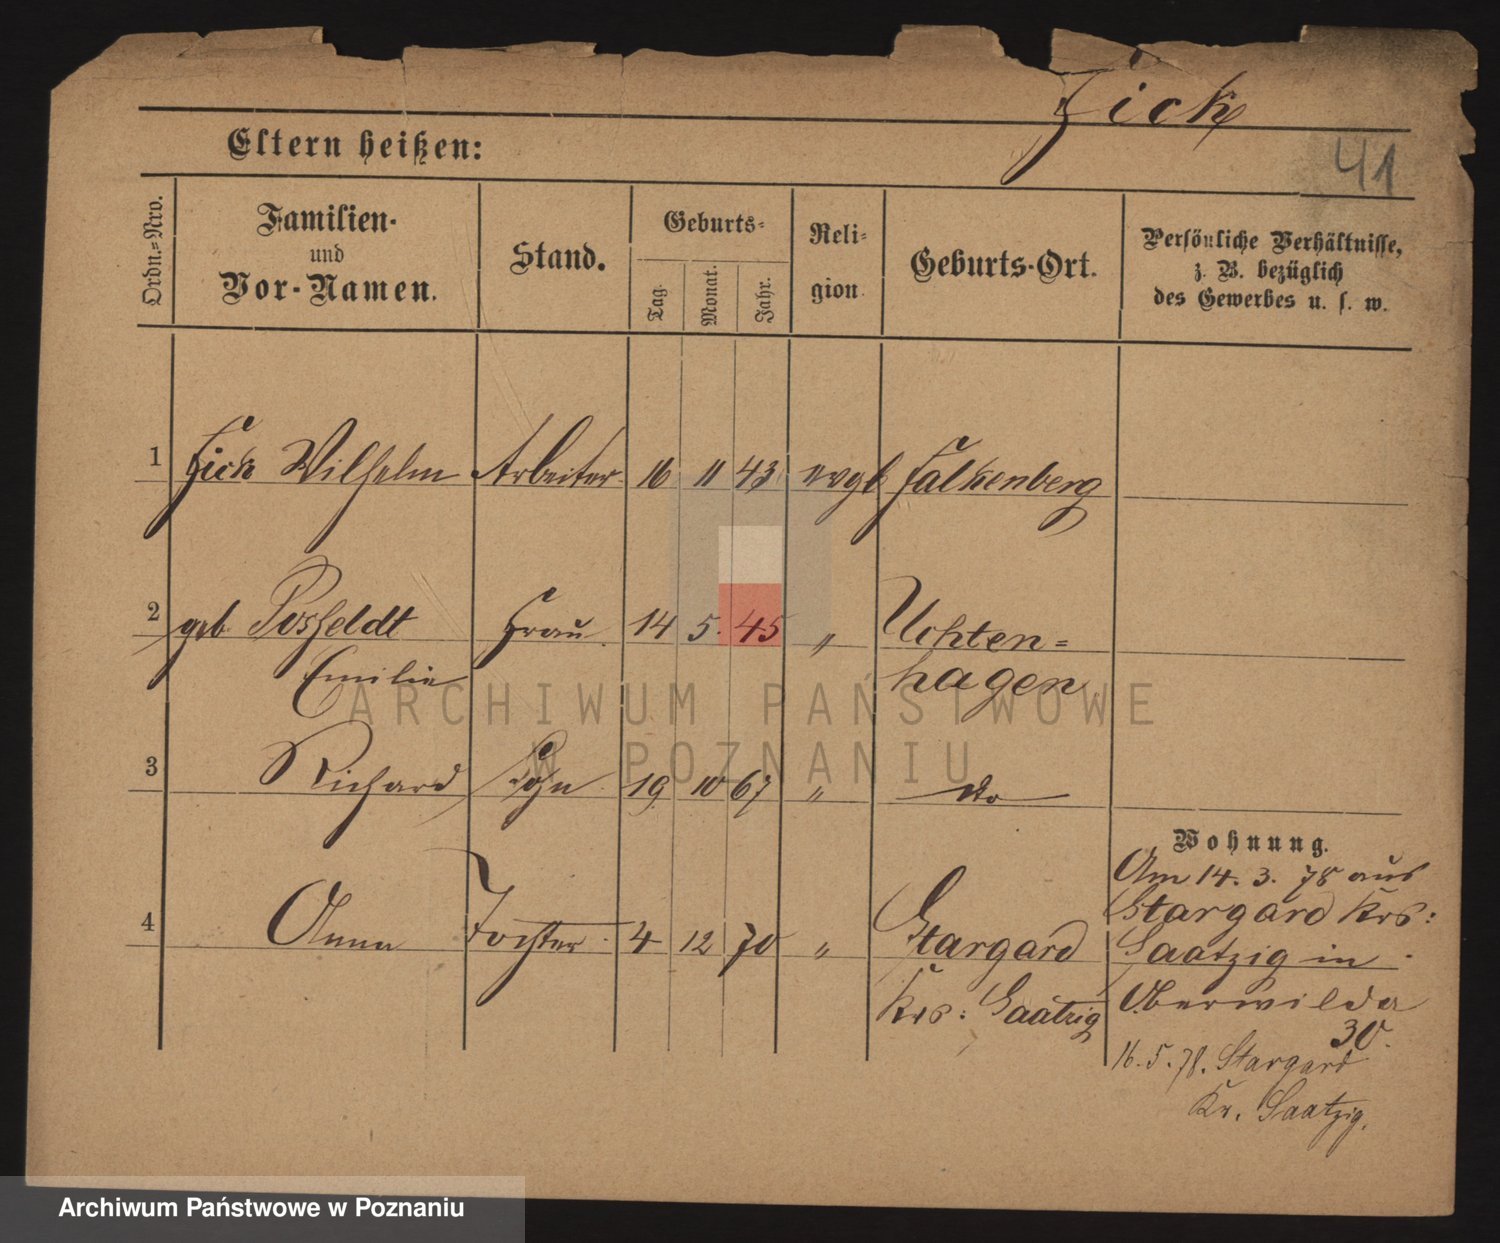 Fick
41
Eltern heißen:
Ordn.=Nro.
Familien-
und
Vor-Namen.
Stand.
Geburts=
Tag.
Monat.
Jahr.
Reli=
gion.
Geburts-Ort.
Persönliche Verhältnisse,
z. B. bezüglich
des Gewerbes u. s. w.
1 Fick Wilhelm Arbeiter 16 11 43 evgl Falkenberg
2 geb Posfeldt Frau 14 5. 45 " Uchten=
Emilie hagen
3 Richard Sohn 19 10 67 " do
Wohnung.
4 Anna Tochter 4 12 70 " Stargard
Krs: Saatzig
Am 14. 3. 78 aus
Stargard Krs:
Saatzig in
Oberwilda
30.
16. 5. 78. Stargard
Kr. Saatzig.
ARCHIWUM PAŃSTWOWE
W POZNANIU
Archiwum Państwowe w Poznaniu